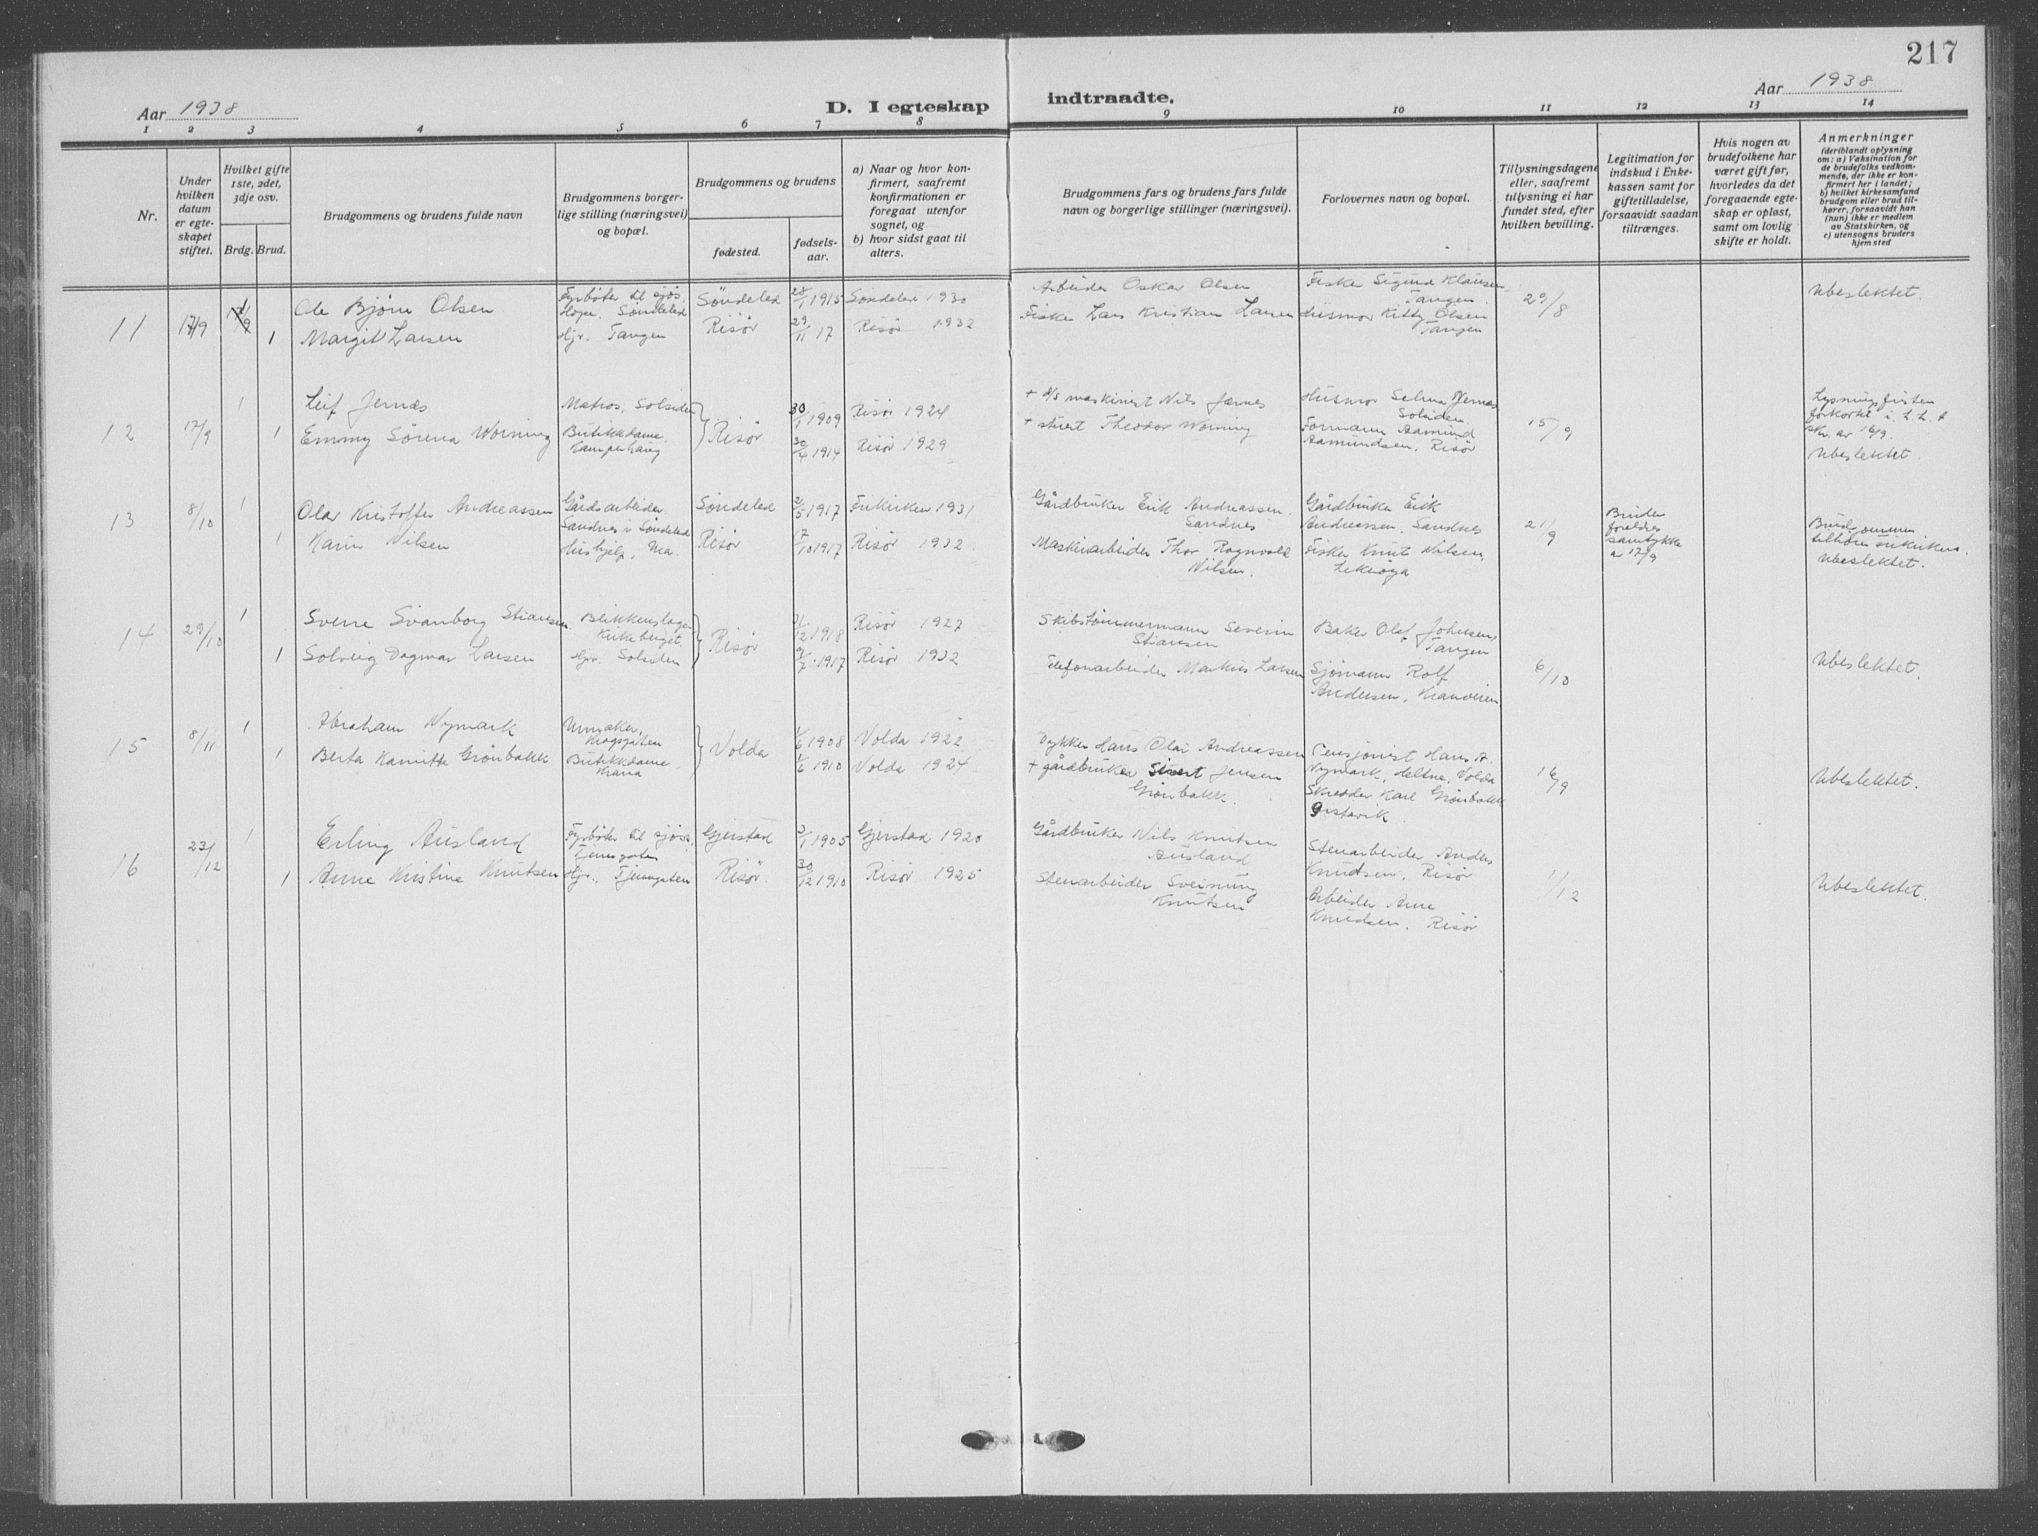 217
Aar 1938
D. I egteskap indtraadte.
Aar 1938
1 2 3 4 5 6 7 8 9 10 11 12 13 14
Nr.
Under hvilken datum er egteskapet stiftet.
Hvilket gifte 1ste, 2det, 3dje osv.
Brdg. Brud.
Brudgommens og brudens fulde navn
Brudgommens borgerlige stilling (næringsvei) og bopæl.
Brudgommens og brudens
fødested.
fødselsaar.
a) Naar og hvor konfirmert, saafremt konfirmationen er foregaat utenfor sognet, og
b) hvor sidst gaat til alters.
Brudgommens fars og brudens fars fulde navn og borgerlige stillinger (næringsvei).
Forlovernes navn og bopæl.
Tillysningsdagene eller, saafremt tillysning ei har fundet sted, efter hvilken bevilling.
Legitimation for indskud i Enkekassen samt for giftetilladelse, forsaavidt saadan tiltrænges.
Hvis nogen av brudefolkene har været gift før, hvorledes da det foregaaende egteskap er opløst, samt om lovlig skifte er holdt.
Anmerkninger
(deriblandt oplysning om: a) Vaksination for de brudefolks vedkommende, der ikke er konfirmert her i landet; b) hvilket kirkesamfund brudgom eller brud tilhører, forsaavidt han (hun) ikke er medlem av Statskirken, og c) utensogns bruders hjemsted
11 17/9
Ole Bjørn Olsen Fyrbøter til sjøs, Hope, Søndeled Søndeled 28/1 1915 Søndeled 1930 Arbeider Oskar Olsen Fisker Sigurd Klausen, Tangen 29/8 Ubeslektet.
1 Margit Larsen Hjv. Tangen Risør 29/11 17 Risør 1932 Fisker Lars Kristian Larsen Husmor Kitty Olsen Tangen
12 17/9 1 Leif Jernæs Matros, Solsiden Risør 30/1 1909 Risør 1924 + d/s maskinist Nils Jærnes Husmor Selma Jernæs Solsiden. 15/9 Lysningsfristen forkortet i skr. av 16/9.
1 Emmy Sørena Worning Butikkdame, Kamperhaug 30/4 1914 Risør 1929 + stuert Theodor Worning Formann Aamund Aamundsen, Risør Ubeslektet.
13 8/10 1 Olav Kristoffer Andreassen Gårdsarbeider Sandnes i Søndeled Søndeled 2/5 1917 Frikirken 1931 Gårdbruker Erik Andreassen. Sandnes Gårdbruker Erik Andreassen. Sandnes 21/9 Brudens foreldres samtykke av 17/9 Brudgommen tilhører frikirken.
1 Karin Nilsen Hushjelp, Risør 17/10 1917 Risør 1932 Maskinarbeider Thor Ragnvald Nilsen. Fisker Knut Nilsen, Ubeslektet.
14 29/10 1 Sverre Svanborg Stiansen Blikkenslager Kirkeberget. Risør 1/12 1918 Risør 1927 Skibstømmermann Severin Stiansen Baker Olaf Johnsen, Tangen
1 Solveig Dagmar Larsen Hjv. Solsiden 9/7 1917 Risør 1932 Telefonarbeider Markus Larsen Sjømann Rolf Andersen, Kranveien 6/10 Ubeslektet.
15 8/11 1 Abraham Nymark Urmaker, Kragsgaten Volda 1/6 1908 Volda 1922 Dykker Hans Olai Andreassen Pensjonist Hans A. Nymark, Heltne, Volda 16/9
1 Berta Kamitta Grønbakk Butikkdame, Krana 1/6 1910 Volda 1924 + gårdbruker Sivert Jensen Grønbakk. Skredder Karl Grønbakk Ørstavik. Ubeslektet.
16 23/12 1 Erling Ausland Fyrbøter til sjøs, Tjensgaten Gjerstad 3/1 1905 Gjerstad 1920 Gårdbruker Nils Knutsen Ausland Stenarbeider Anders Knudsen, Risør 1/12
1 Anne Kristine Knutsen Hjv., Tjensgaten Risør. 30/12 1910 Risør 1925 Stenarbeider Sveinung Knutsen Arbeider Arne Knudsen. Risør Ubeslektet.